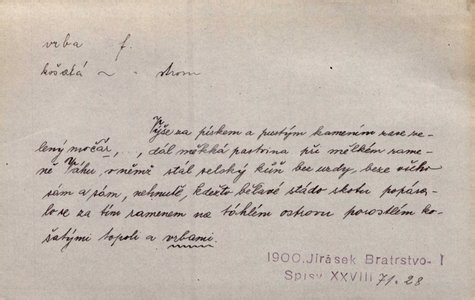 vrba f.
košatá ~ - strom
Výše za pískem a pustým kamením zase ze-
lený močář, . . , dál měkká pastvina při mělkém rame-
ně Váhu, v němž stál selský kůň bez uzdy, beze všeho
sám a sám, nehnutě, kdežto bělavé stádo skotu popása-
lo se za tím ramenem na táhlém ostrovu porostlém ko-
šatými topoli a vrbami.
1900. Jirásek Bratrstvo I
Spisy XXVIII 71. 28